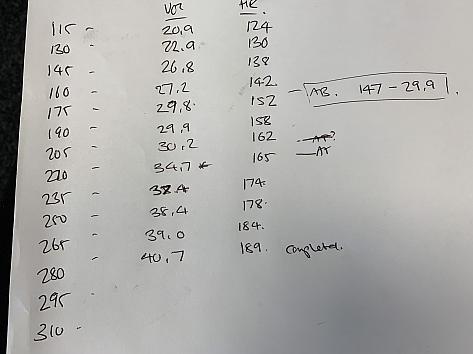 VO2 HR.
115 - 20.9 124
130 - 22.9 130
145 - 26.8 138
160 - 27.2 142. - AB. 147 - 29.9
175 - 29.8 152
190 - 29.9 158
205 - 30.2 162
220 - 34.7 165 - AT
235 - 174
250 - 38.4 178
265 - 39.0 184.
280 40.7 189. completed.
295 -
310 -